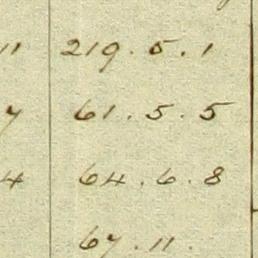 11 219.5.1
7 61.5.5
4 64.6.8
67.11.